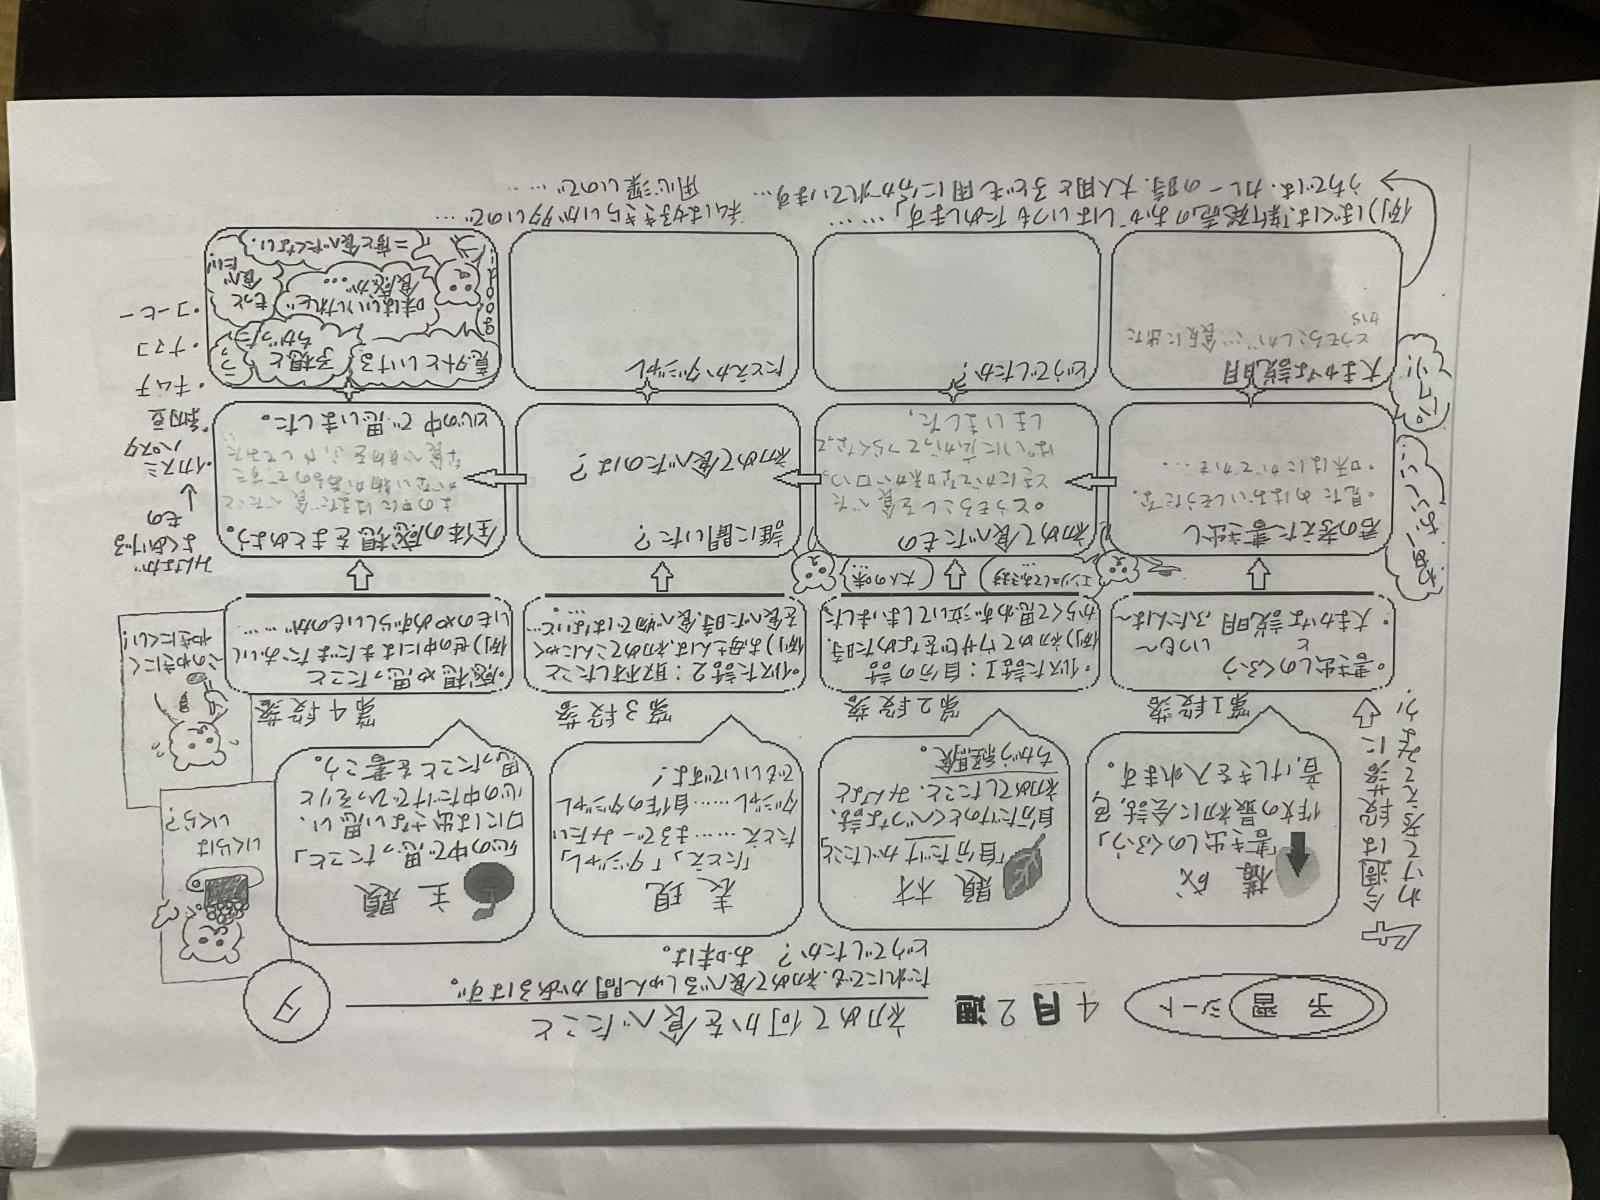 予習シート
4月2週
初めて何かを食べたこと
だれにでも、初めて食べるしゅん間があるはず。
どうでしたか? お味は。
タ
今週は段落に
わけて考えてみよう。
構成
「書き出しのくふう」
作文の最初に会話、色、
音、けしきを入れます。
題材
「自分だけがしたこと」
自分だけのとくべつな話、
初めてしたこと、みんなと
ちがう経験。
表現
「たとえ」「ダジャレ」
たとえ……まるで〜みたい
ダジャレ……自作のダジャレ
でもいいですよ!
主題
「心の中で思ったこと」
口には出さない思い、
心の中だけでひっそりと
思ったことを書こう。
いくらは
いくら?
このやきにく
やきにくい!
第1段落
・書き出しのくふう
と
いつも〜
・大まかな説明 ふだんは〜
第2段落
・似た話1:自分の話
(例)初めてワサビをなめた時、
からくて思わず泣いてしまいました
第3段落
・似た話2:取材したこと
(例)お母さんは、初めてこんにゃく
を食べた時、食べ物ではないと…。
第4段落
・感想や思ったこと
(例)世の中にはまだまだおいし
いものやめずらしいものが……
エンリョしておきます
大人の味…
君の考えた書き出し
・見ためはおいしそうだな。
・味はにがてかも…
初めて食べたもの
とうもろこしを食べた
ときににがてな味が口いっ
ぱいに広がってつらくなって
しまいました。
誰に聞いた?
初めて食べたのは?
全体の感想をまとめよう。
よの中にはまだ食べたこと
がない物があるのですこし
な食べ物をふやしてみた
と心の中で思いました。
みんなが
よくあげる
もの
・イカスミ
パスタ
・納豆
・キムチ
・ナマコ
・コーヒー
わあ!おいしい…
パクリ!
大まかな説明
とうもろこしが…食たくに出た
から
どうでしたか?
たとえかダジャレ
意外といける
予想と
ちがった
味はいいけれど
食感が…
もっと
食べ
たい!
二度と食べたくない。
good!
(例)ぼくは、「新発売」のおかしはいつもためします。……
私は好ききらいが多いので…
うちでは、カレーの時、大人用と子ども用に分かれています…
用心深いので……